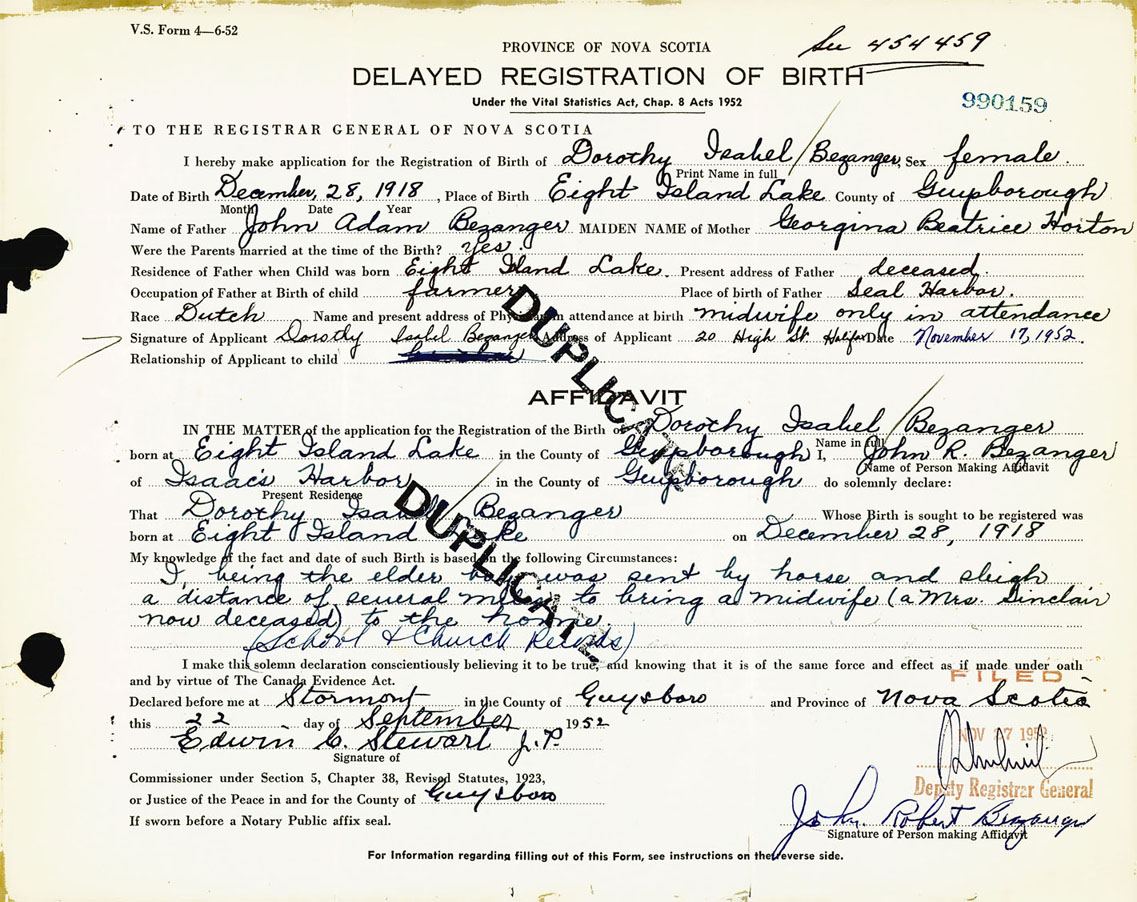 V.S. Form 4—6-52
PROVINCE OF NOVA SCOTIA
See 454459
DELAYED REGISTRATION OF BIRTH
Under the Vital Statistics Act, Chap. 8 Acts 1952
990159
TO THE REGISTRAR GENERAL OF NOVA SCOTIA
I hereby make application for the Registration of Birth of Dorothy Isabel / Bezanger, Sex female.
Print Name in full
Date of Birth December, 28, 1918, Place of Birth Eight Island Lake County of Guysborough
Month Date Year
Name of Father John Adam Bezanger MAIDEN NAME of Mother Georgina Beatrice Horton
Were the Parents married at the time of the Birth? yes.
Residence of Father when Child was born Eight Island Lake. Present address of Father deceased.
Occupation of Father at Birth of child farmer Place of birth of Father Seal Harbor.
Race Dutch Name and present address of Physician in attendance at birth midwife only in attendance
Signature of Applicant Dorothy Isabel Bezanger Address of Applicant 20 High St. Halifax Date November 17, 1952.
Relationship of Applicant to child
DUPLICATE
AFFIDAVIT
IN THE MATTER of the application for the Registration of the Birth of Dorothy Isabel / Bezanger
Name in full
born at Eight Island Lake in the County of Guysborough I, John R. Bezanger
Name of Person Making Affidavit
of Isaac's Harbor in the County of Guysborough do solemnly declare:
Present Residence
DUPLICATE
That Dorothy Isabel Bezanger Whose Birth is sought to be registered was
born at Eight Island Lake on December 28, 1918
My knowledge of the fact and date of such Birth is based on the following Circumstances:
I, being the elder boy was sent by horse and sleigh
a distance of several miles to bring a midwife (a Mrs. Sinclair
now deceased) to the home.
(School & Church Records)
I make this solemn declaration conscientiously believing it to be true, and knowing that it is of the same force and effect as if made under oath
and by virtue of The Canada Evidence Act.
FILED
Declared before me at Stormont in the County of Guysboro and Province of Nova Scotia
this 22 day of September 1952
NOV 27 195
Edwin C. Stewart J.P.
Signature of
Commissioner under Section 5, Chapter 38, Revised Statutes, 1923,
Deputy Registrar General
or Justice of the Peace in and for the County of Guysboro
If sworn before a Notary Public affix seal.
John Robert Bezanger
Signature of Person making Affidavit
For Information regarding filling out of this Form, see instructions on the reverse side.